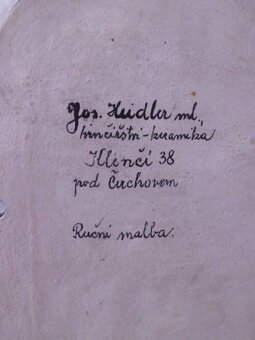 Jos. Heidler ml.,
hrnčířství-keramika
Klenčí 38
pod Čerchovem
Ruční malba.